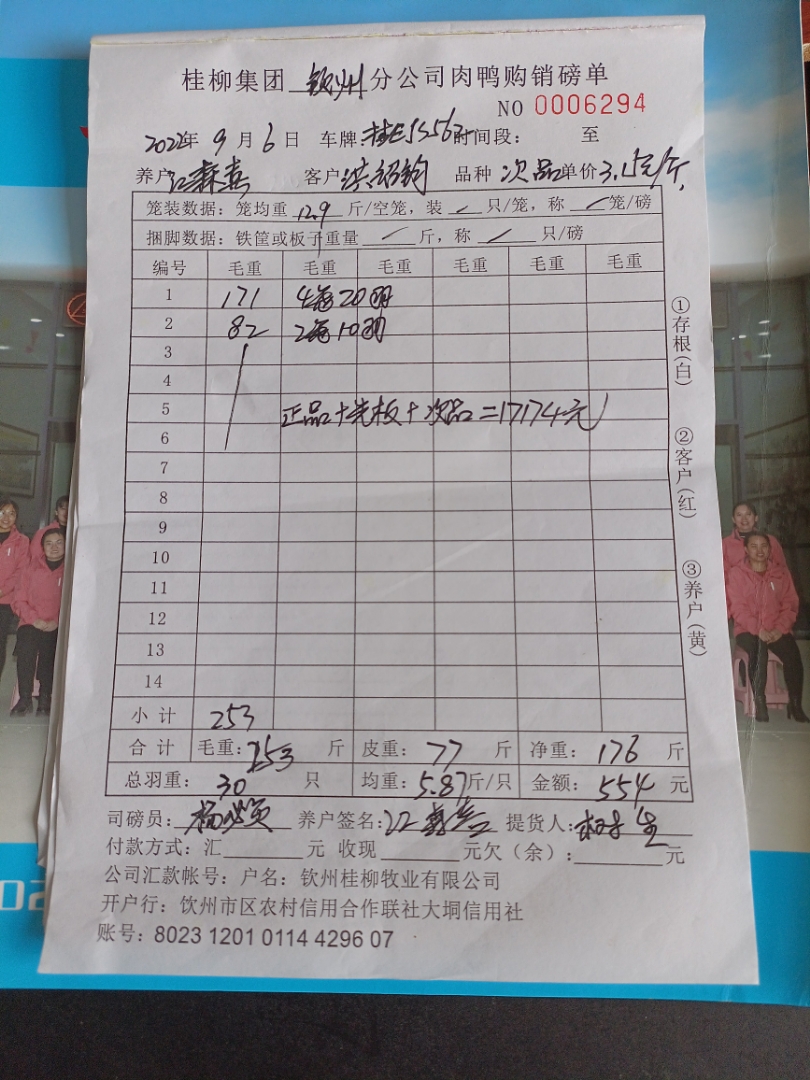 桂柳集团 钦州 分公司肉鸭购销磅单
NO 0006294
2022年 9月 6日 车牌: 时间段: 至
养户 江森喜 客户 洪绍钧 品种 次品 单价 3.15元/斤
笼装数据:笼均重 12.9 斤/空笼,装 只/笼,称 笼/磅
捆脚数据:铁筐或板子重量 斤,称 只/磅
编号 毛重 毛重 毛重 毛重 毛重 毛重
1 171 4 20羽
2 82 2 10羽
3
4
5 正品+光板+次品=17174元
6
7
8
9
10
11
12
13
14
小计 253
合计 毛重:253 斤 皮重:77 斤 净重:176 斤
总羽重:30 只 均重:5.87斤/只 金额:554 元
司磅员: 养户签名:江森喜 提货人:
付款方式:汇 元 收现 元欠(余): 元
公司汇款帐号:户名:钦州桂柳牧业有限公司
开户行:钦州市区农村信用合作联社大垌信用社
账号:8023 1201 0114 4296 07
①存根(白)
②客户(红)
③养户(黄)